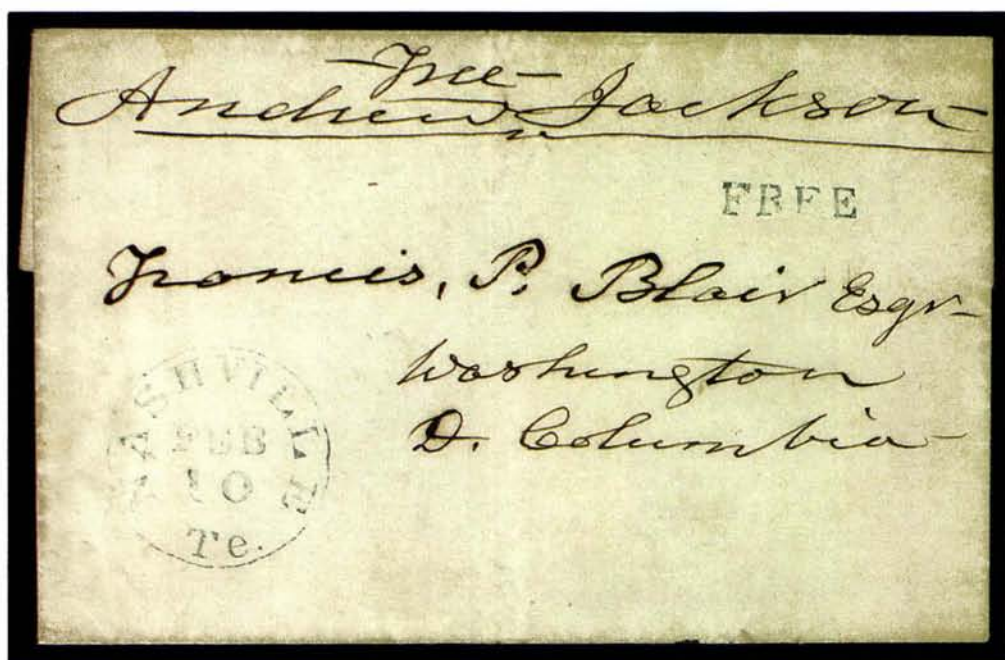 Free
Andrew Jackson
FREE
Francis, P. Blair Esqr
Washington
D. Columbia
NASHVILLE
FEB
10
Te.